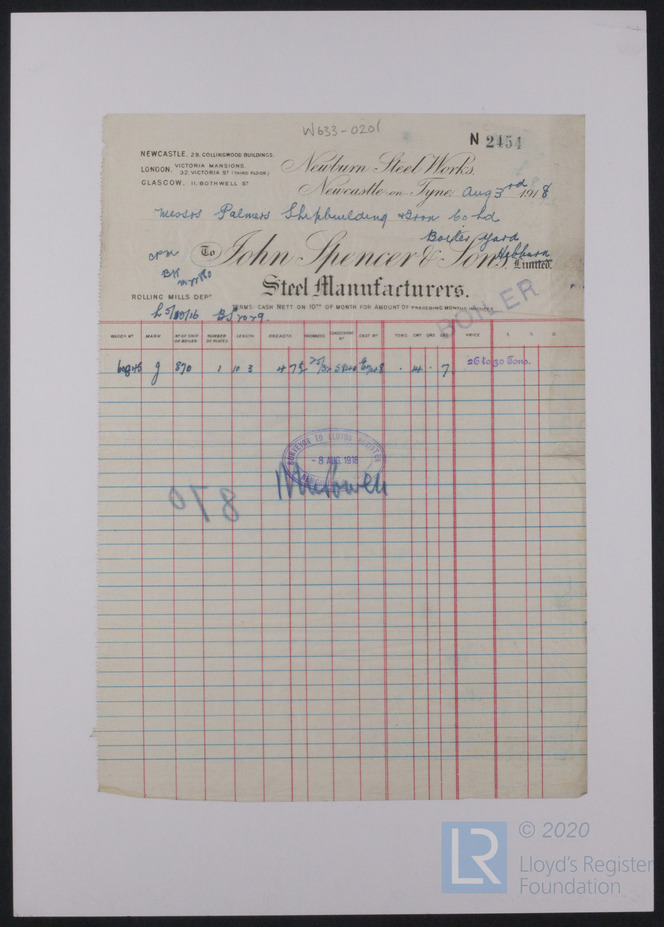 W633-0201
N 2454
NEWCASTLE, 28, COLLINGWOOD BUILDINGS.
LONDON, VICTORIA MANSIONS,
32, VICTORIA ST (THIRD FLOOR)
GLASCOW, 11, BOTHWELL ST
Newburn Steel Works,
Newcastle on Tyne, Aug 3rd 1918
Messrs Palmers Shipbuilding & Iron Co Ld
Boiler Yard
Hebburn
To John Spencer & Sons, Limited.
Steel Manufacturers.
ROLLING MILLS DEPT
TERMS: CASH NETT ON 10TH OF MONTH FOR AMOUNT OF PRECEDING MONTHS
BOILER
MARK NO OF SHIP OR BOILER NUMBER OF PLATES LENGTH BREADTH THICKNESS CAST NO TONS CWT QRS LBS PRICE £ S D
g 870 1 10 3 4 7 4 7 26 to 30 Tons.
SURVEYOR TO LLOYDS REGISTER
- 8 AUG. 1918
870
© 2020
LR
Lloyd's Register
Foundation